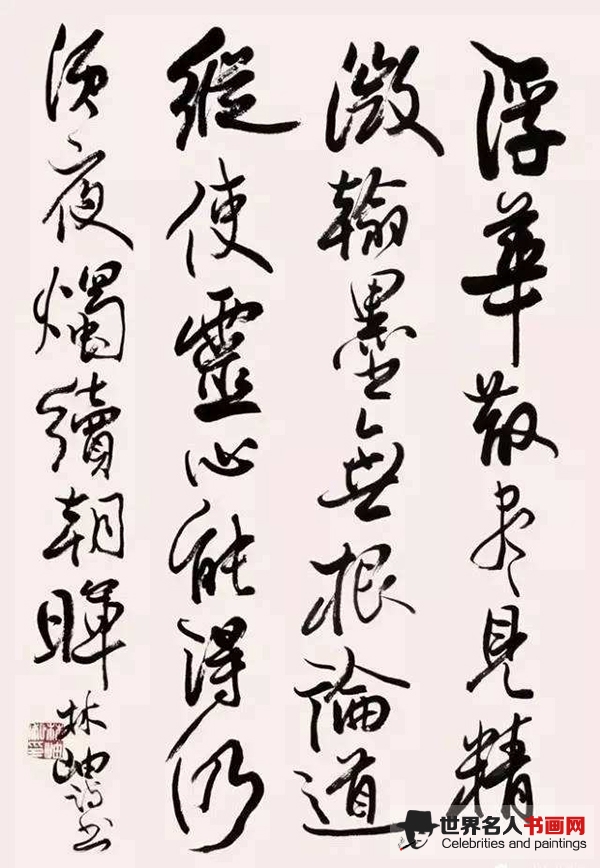 浮華散盡見精
微翰墨無根論道
縱使靈心能得仍
須夜燭續朝暉
林岫詩書
世界名人书画网
Celebrities and paintings